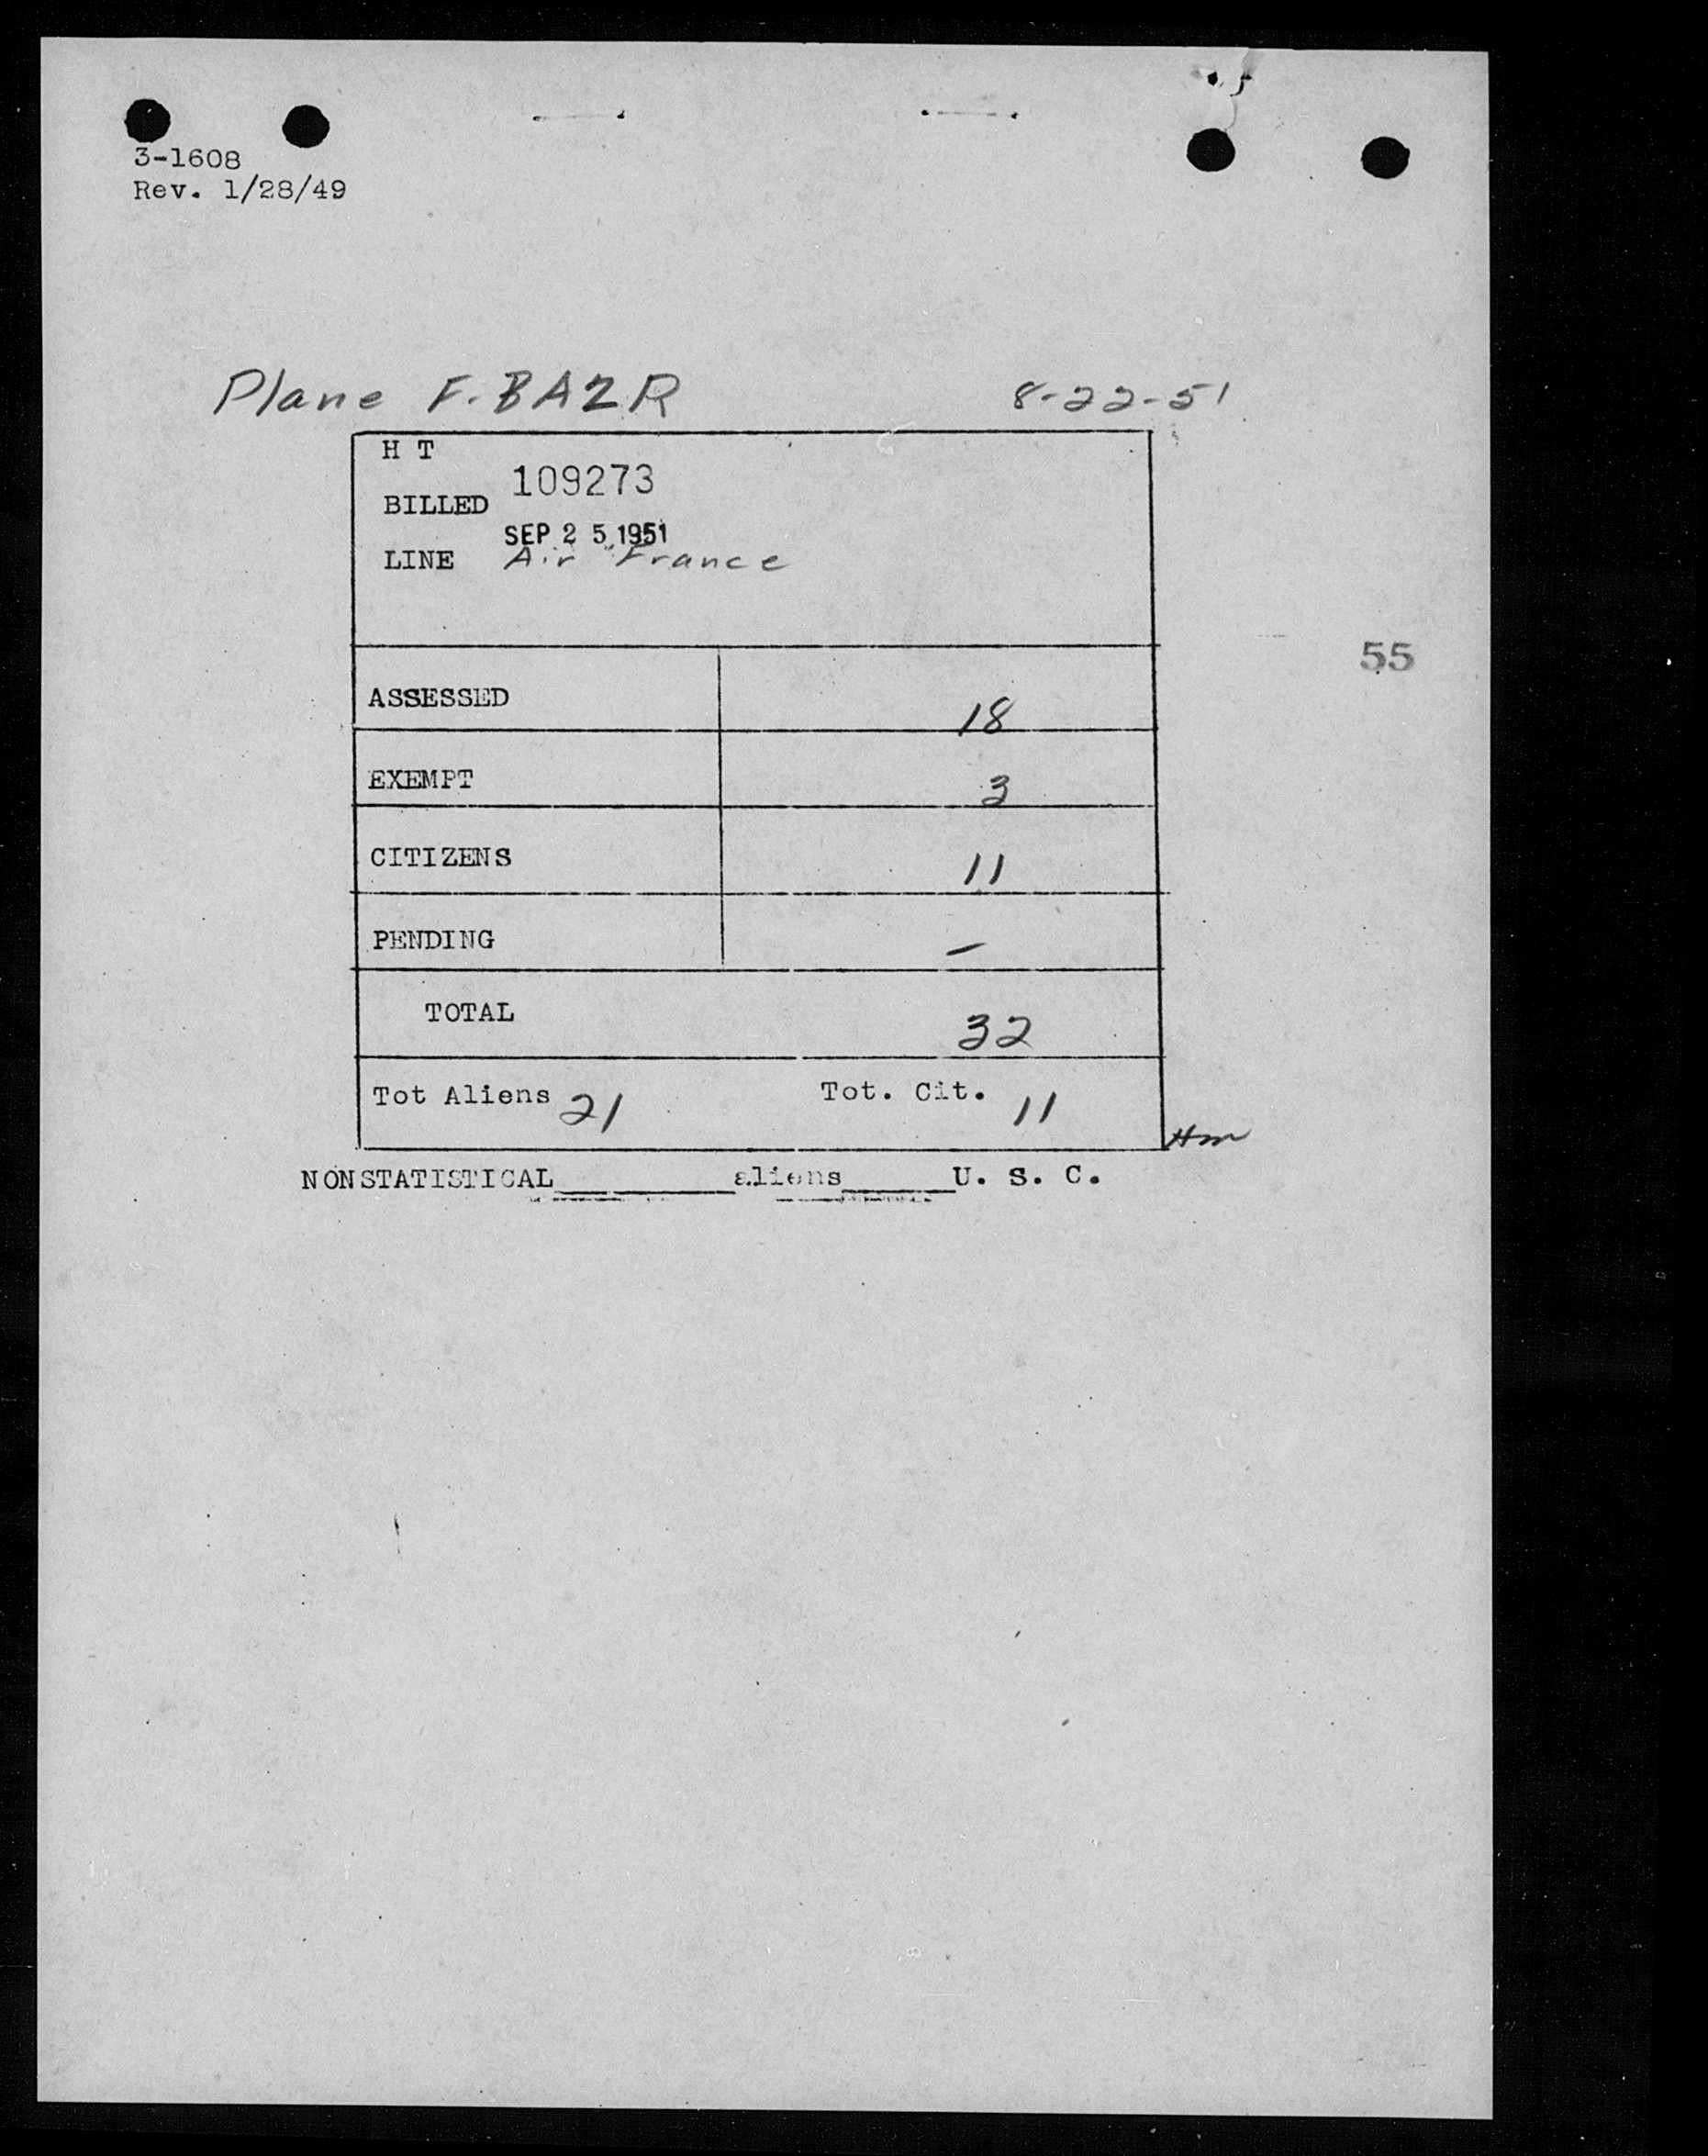 3-1608
Rev. 1/28/49
Plane F-BAZR 8-22-51
H T
109273
BILLED
SEP 25 1951
LINE Air France
55
ASSESSED 18
EXEMPT 3
CITIZENS 11
PENDING –
TOTAL 32
Tot Aliens 21 Tot. Cit. 11
NONSTATISTICAL________aliens_____U. S. C.